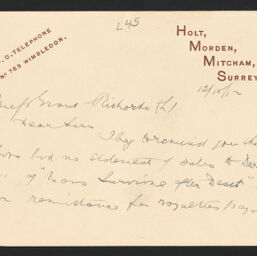 L45
.O. TELEPHONE
Nº 769 WIMBLEDON.
HOLT,
MORDEN,
MITCHAM,
SURREY
12/10/12
Grant Richards Ltd
Dear Sirs
I beg to remind you tha
had no statement of sales to Dec
of "Mans Survival after Death"
remittance for royalties pay